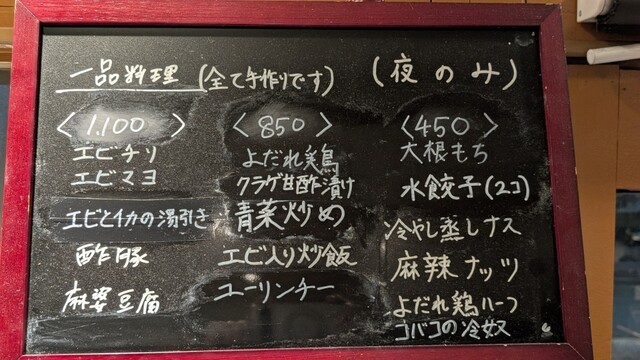 一品料理 (全て手作りです) (夜のみ)
〈1.100〉
エビチリ
エビマヨ
エビとイカの湯引き
酢豚
麻婆豆腐
〈850〉
よだれ鶏
クラゲ甘酢漬け
青菜炒め
エビ入り炒飯
ユーリンチー
〈450〉
大根もち
水餃子(2コ)
冷やし蒸しナス
麻辣ナッツ
よだれ鶏ハーフ
コバコの冷奴